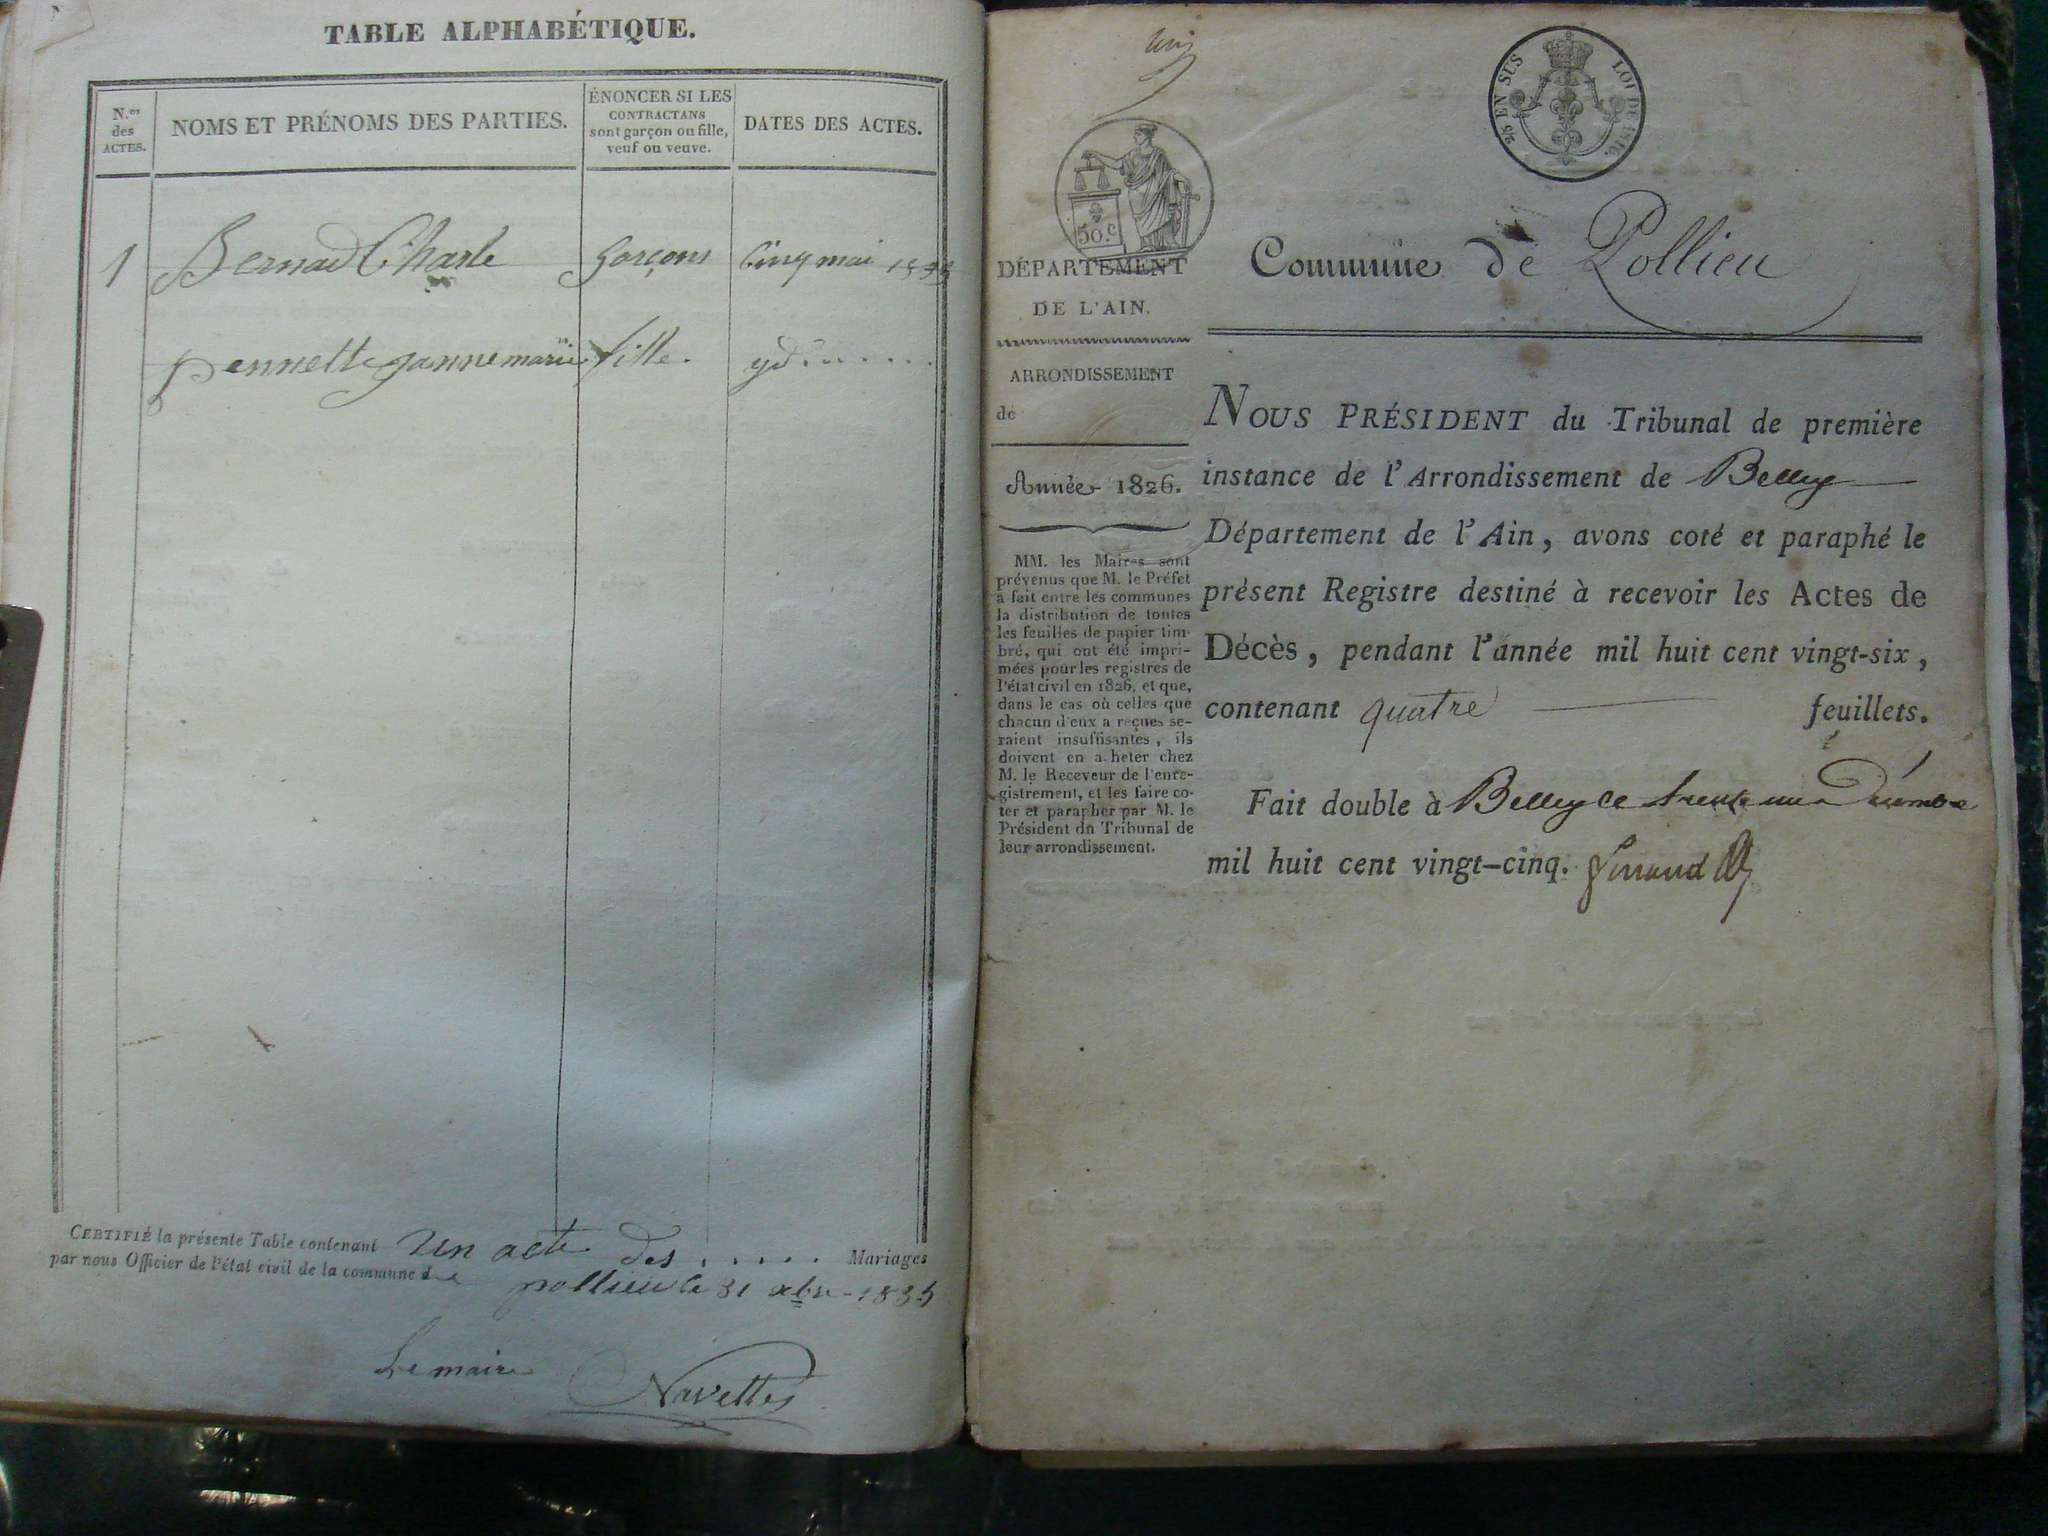 TABLE ALPHABÉTIQUE.
N.os
des
ACTES.
NOMS ET PRÉNOMS DES PARTIES.
ÉNONCER SI LES
CONTRACTANS
sont garçon ou fille,
veuf ou veuve.
DATES DES ACTES.
1 Bernad Charle garçons Cinq mai
pennette janne marie fille. yd......
CERTIFIÉ la présente Table contenant un acte des ..... Mariages
par nous Officier de l'état civil de la commune de
pollieu le 31 xbre 1835
Le maire
Navettes
25 EN SUS
LOI DE 1816.
50.c
DÉPARTEMENT
DE L'AIN.
ARRONDISSEMENT
de
Année 1826.
MM. les Maires sont
prévenus que M. le Préfet
a fait entre les communes
la distribution de toutes
les feuilles de papier tim-
bré, qui ont été impri-
mées pour les registres de
l'état civil en 1826, et que,
dans le cas où celles que
chacun d'eux a reçues se-
raient insuffisantes, ils
doivent en acheter chez
M. le Receveur de l'enre-
gistrement, et les faire co-
ter et parapher par M. le
Président du Tribunal de
leur arrondissement.
Commune de Pollieu
NOUS PRÉSIDENT du Tribunal de première
instance de l'Arrondissement de Belley
Département de l'Ain, avons coté et paraphé le
présent Registre destiné à recevoir les Actes de
Décès, pendant l'année mil huit cent vingt-six,
contenant quatre feuillets.
Fait double à Belley ce trente un Décembre
mil huit cent vingt-cinq.